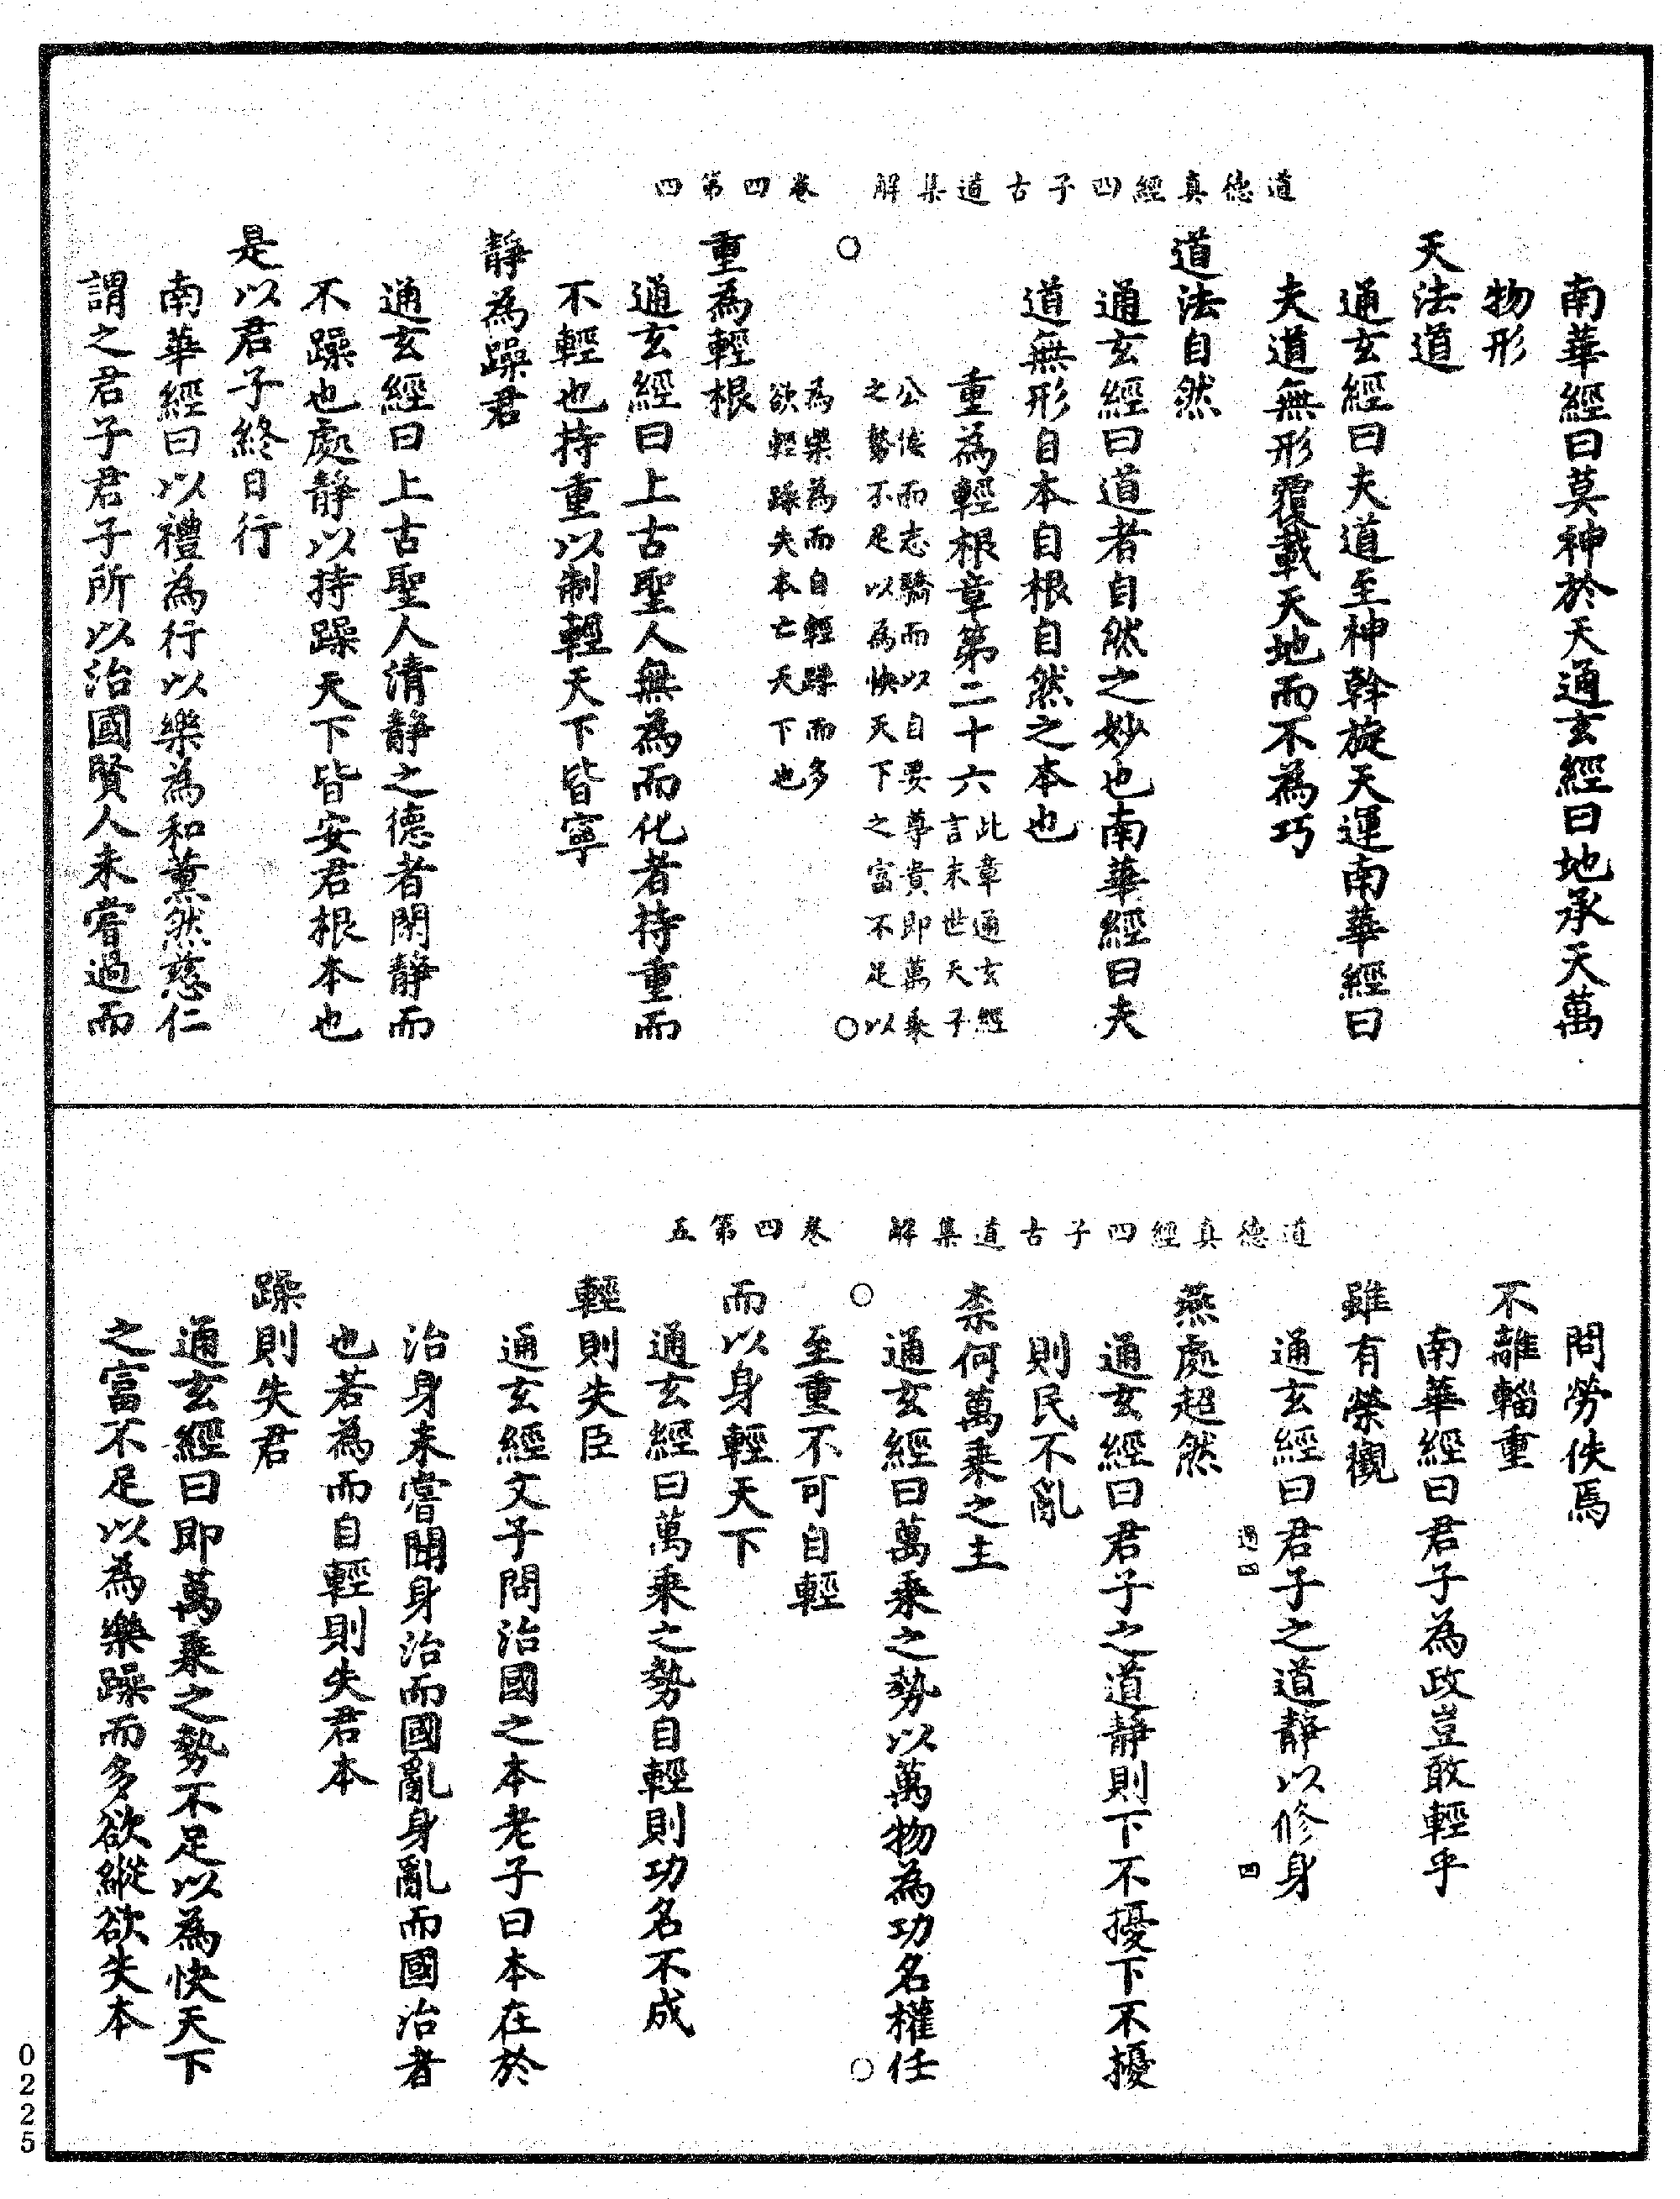 道德真經四子古道集解　卷四第四
南華經曰莫神於天通玄經曰地承天萬
物形
天法道
通玄經曰夫道至神幹旋天運南華經曰
夫道無形覆載天地而不為巧
道法自然
通玄經曰道者自然之妙也南華經曰夫
道無形自本自根自然之本也
重為輕根章第二十六此章通玄經
言末世天子
公侯而志驕而以自要尊貴即萬乘
之勢不足以為快天下之富不足以
為樂為而自輕躁而多
欲輕躁失本亡天下也
重為輕根
通玄經曰上古聖人無為而化者持重而
不輕也持重以制輕天下皆寧
靜為躁君
通玄經曰上古聖人清靜之德者閑靜而
不躁也處靜以持躁天下皆安君根本也
是以君子終日行
南華經曰以禮為行以樂為和薰然慈仁
謂之君子君子所以治國賢人未嘗過而
道德真經四子古道集解　卷四第五
問勞佚焉
不離輜重
南華經曰君子為政豈敢輕乎
雖有榮觀
通玄經曰君子之道靜以修身
過四　四
燕處超然
通玄經曰君子之道靜則下不擾下不擾
則民不亂
柰何萬乘之主
通玄經曰萬乘之勢以萬物為功名權任
至重不可自輕
而以身輕天下
通玄經曰萬乘之勢自輕則功名不成
輕則失臣
通玄經文子問治國之本老子曰本在於
治身未嘗聞身治而國亂身亂而國治者
也若為而自輕則失君本
躁則失君
通玄經曰即萬乘之勢不足以為快天下
之富不足以為樂躁而多欲縱欲失本
0225